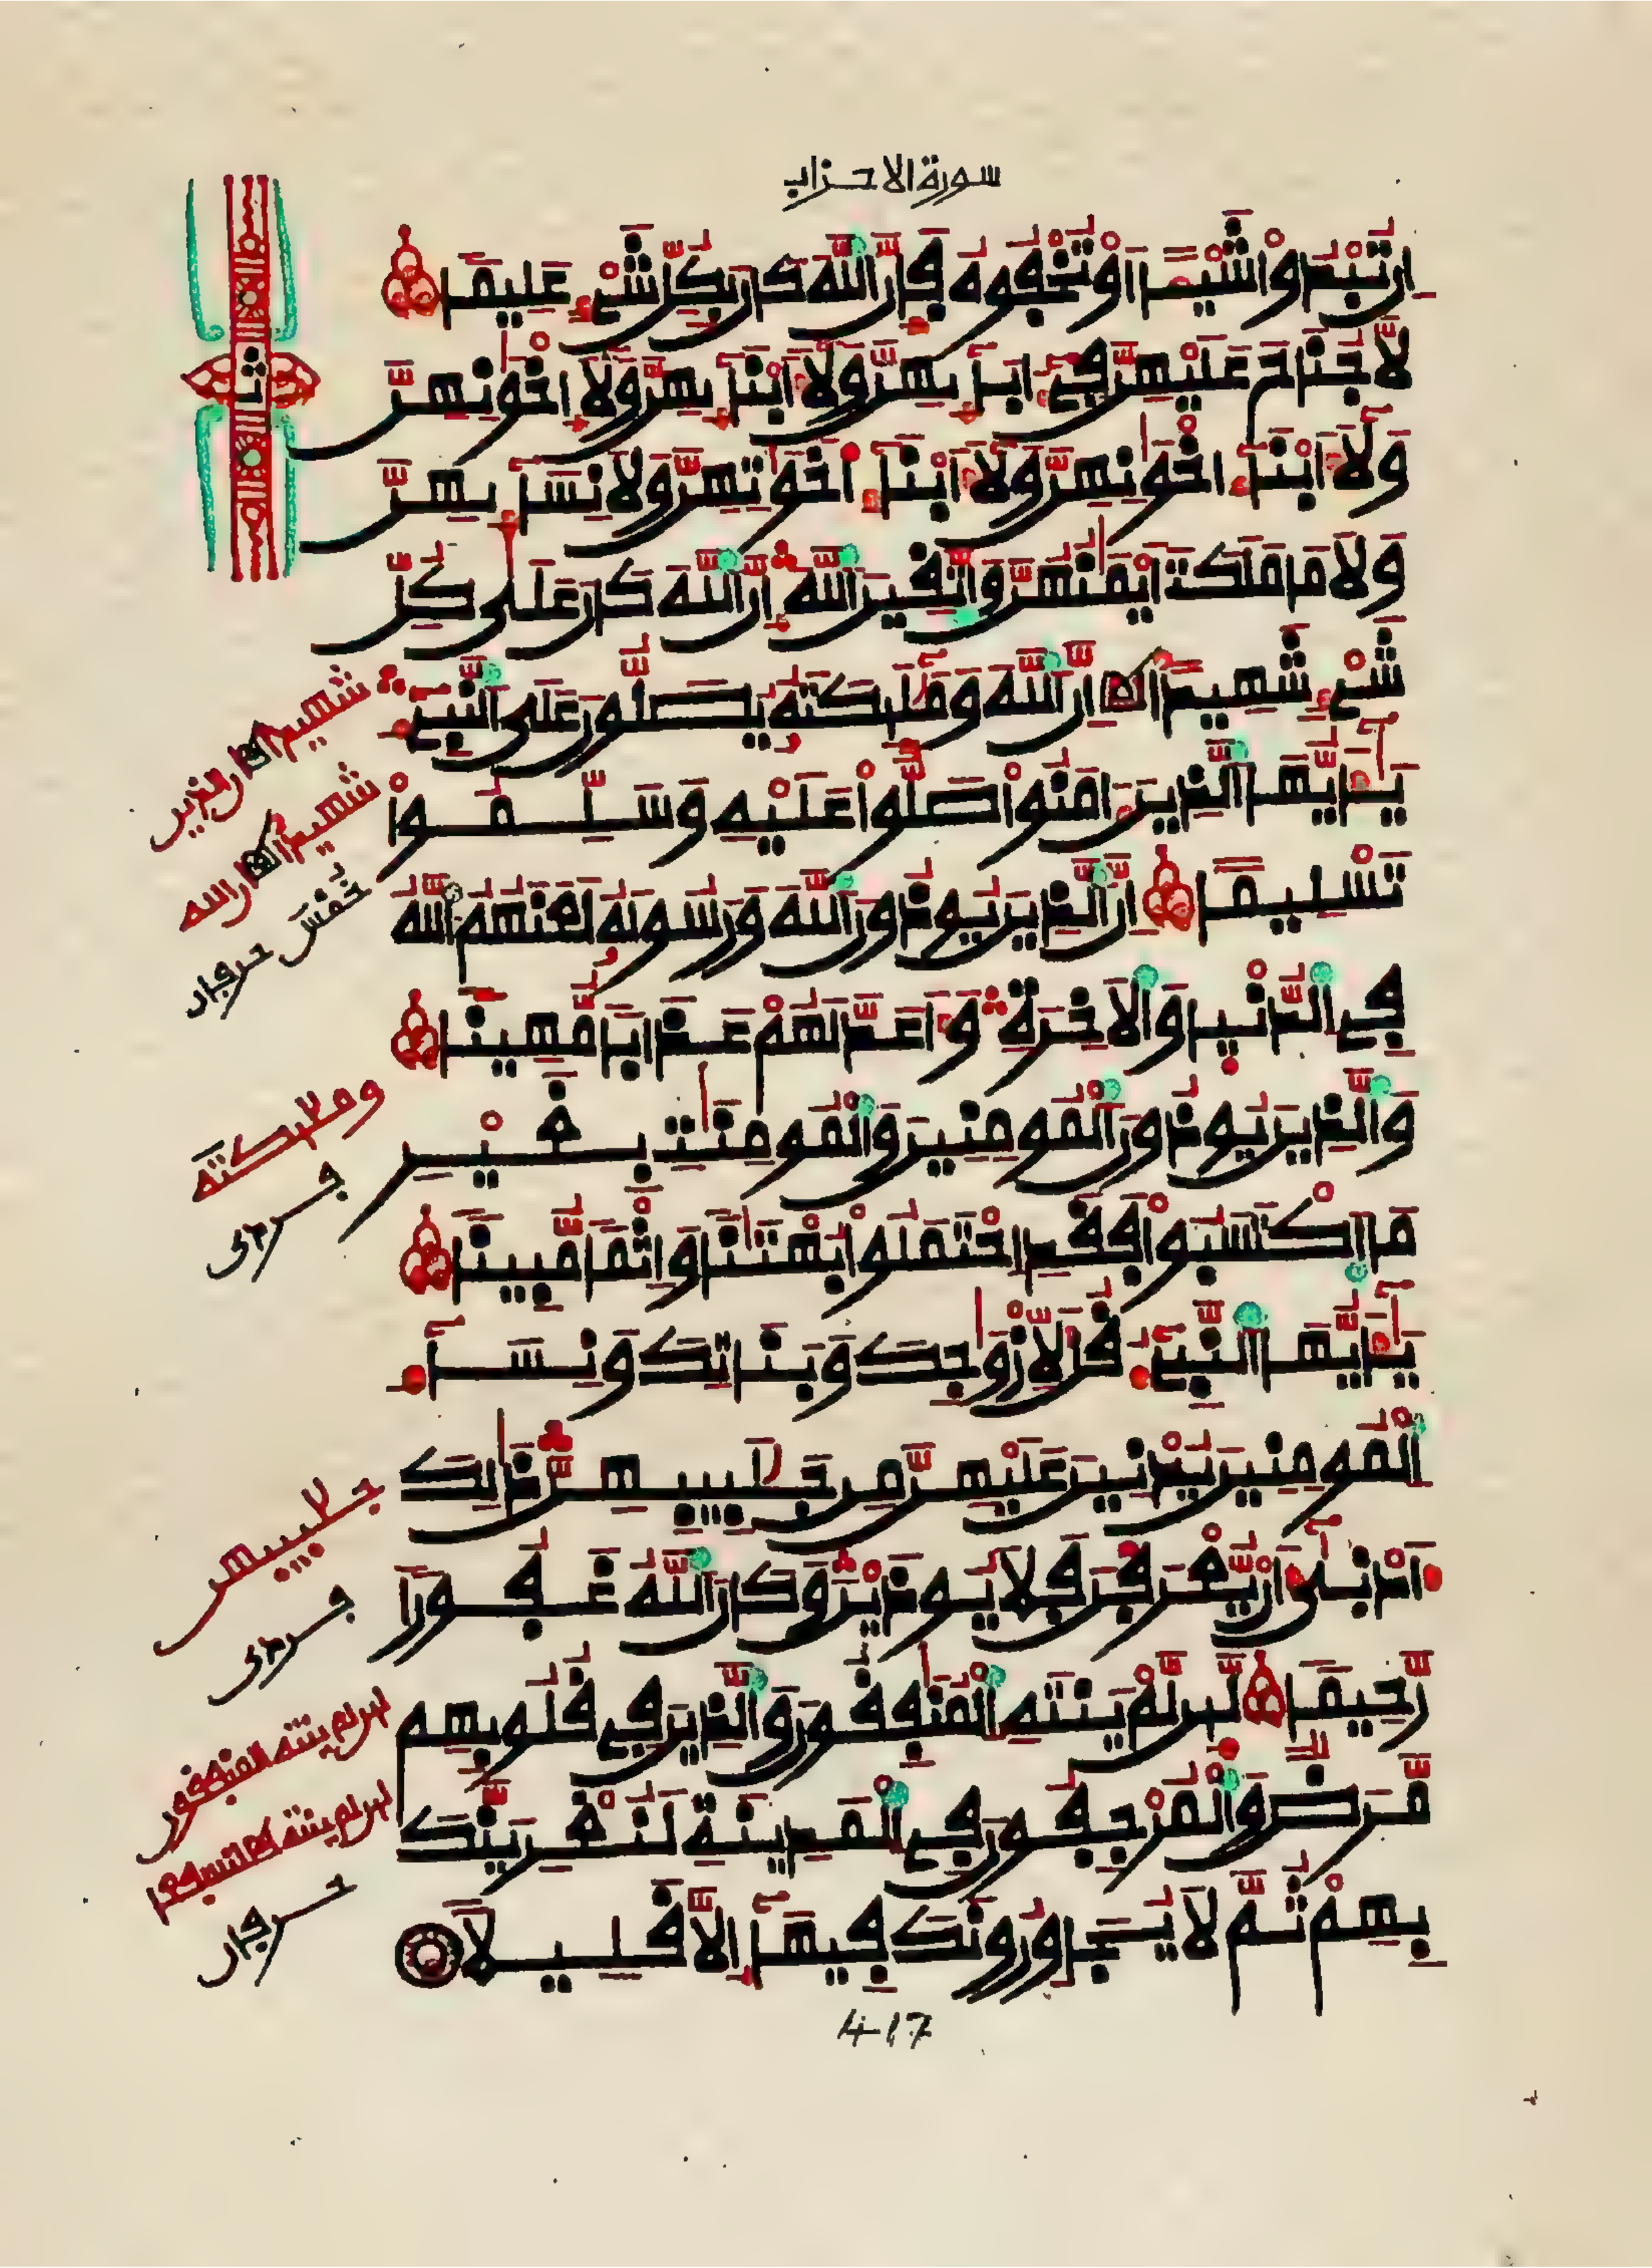 سورة الاحزاب
إن تُبْدُواْ شَيْـًٔا أَوْ تُخْفُوهُ فَإِنَّ ٱللَّهَ كَانَ بِكُلِّ شَےْءٍ عَلِيمًا
لَّا جُنَاحَ عَلَيْهِنَّ فِےٓ ءَابَآئِهِنَّ وَلَآ أَبْنَآئِهِنَّ وَلَآ إِخْوَٰنِهِنَّ
وَلَآ أَبْنَآءِ اخْوَٰنِهِنَّ وَلَآ أَبْنَآءِ اَخَوَٰتِهِنَّ وَلَا نِسَآئِهِنَّ
وَلَا مَا مَلَكَتَ اَيْمَٰنُهُنَّ وَٱتَّقِينَ ٱللَّهَ إِنَّ ٱللَّهَ كَانَ عَلَىٰ كُلِّ
شَےْءٍ شَهِيدًا إِنَّ ٱللَّهَ وَمَلَٰٓئِكَتَهُۥ يُصَلُّونَ عَلَى ٱلنَّبِےٓءِ
يَٰٓأَيُّهَا ٱلَّذِينَ ءَامَنُواْ صَلُّواْ عَلَيْهِ وَسَلِّمُواْ
تَسْلِيمًا إِنَّ ٱلَّذِينَ يُوذُونَ ٱللَّهَ وَرَسُولَهُۥ لَعَنَهُمُ ٱللَّهُ
فِے ٱلدُّنْيَا وَٱلَاخِرَةِ وَأَعَدَّ لَهُمْ عَذَابًا مُّهِينًا
وَٱلَّذِينَ يُوذُونَ ٱلْمُومِنِينَ وَٱلْمُومِنَٰتِ بِغَيْرِ
مَا ٱكْتَسَبُواْ فَقَدِ ٱحْتَمَلُواْ بُهْتَٰنًا وَإِثْمًا مُّبِينًا
يَٰٓأَيُّهَا ٱلنَّبِےٓءُ قُل لِّأَزْوَٰجِكَ وَبَنَاتِكَ وَنِسَآءِ
ٱلْمُومِنِينَ يُدْنِينَ عَلَيْهِنَّ مِن جَلَٰبِيبِهِنَّ ذَٰلِكَ
أَدْنَىٰٓ أَنْ يُّعْرَفْنَ فَلَا يُوذَيْنَ وَكَانَ ٱللَّهُ غَفُورًا
رَّحِيمًا لَّئِن لَّمْ يَنتَهِ ٱلْمُنَٰفِقُونَ وَٱلَّذِينَ فِے قُلُوبِهِم
مَّرَضٌ وَٱلْمُرْجِفُونَ فِے ٱلْمَدِينَةِ لَنُغْرِيَنَّكَ
بِهِمْ ثُمَّ لَا يُجَاوِرُونَكَ فِيهَآ إِلَّا قَلِيلًا
417
ثمن
شهيدا ان الذين
شهيدا ان الله
خمس حرفان
وملائكته
فردى
جلابيبهن
فردى
لين لم ينته المنفقون
حرفان